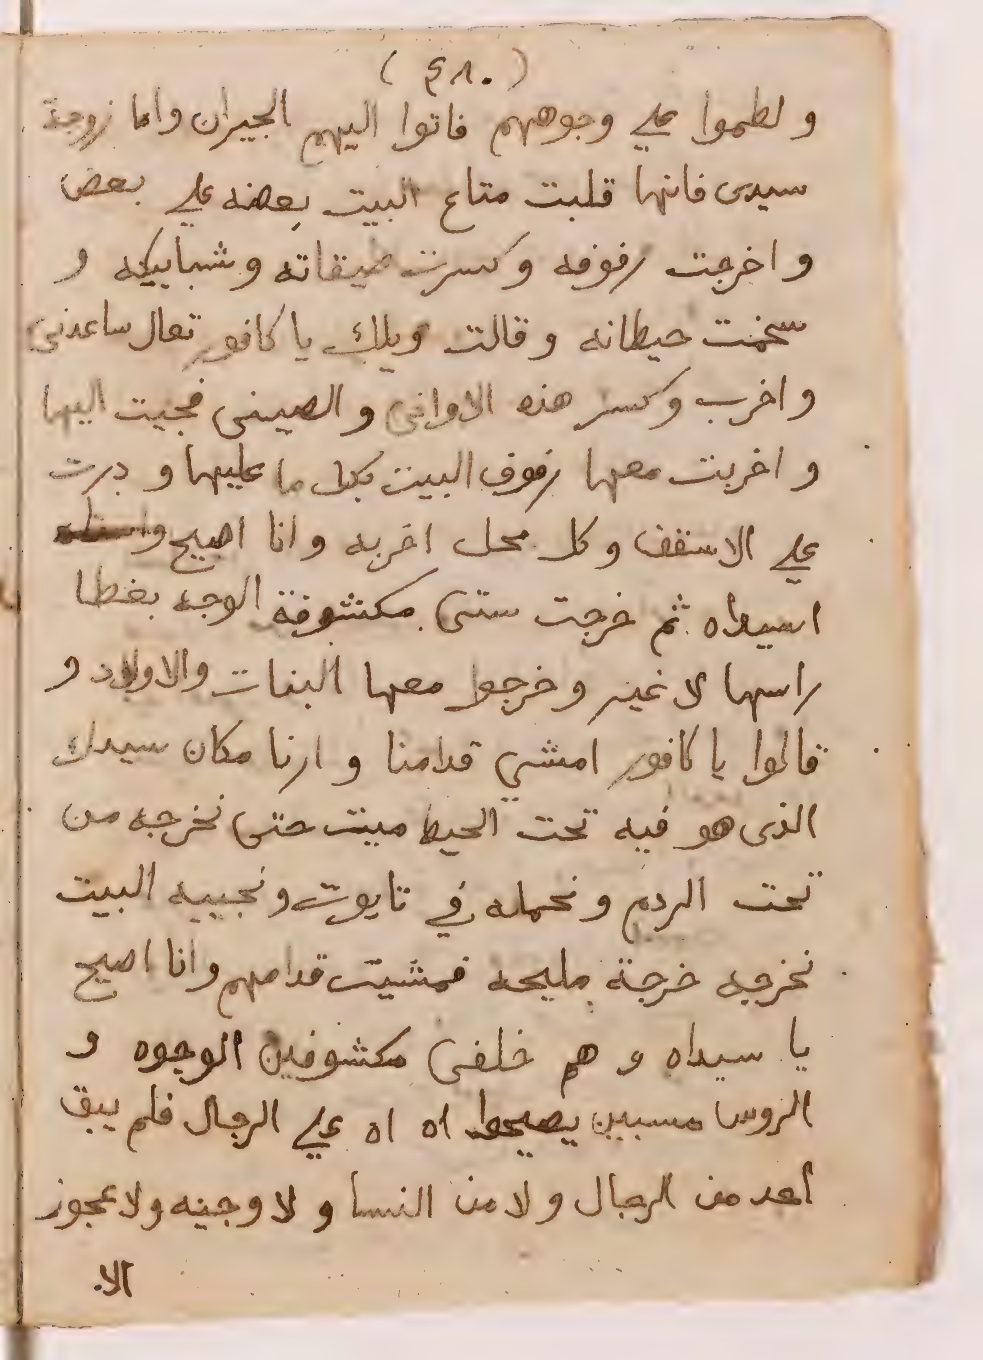 (٤٨٠)
و لطموا علي وجوههم فاتوا اليهم الجيران واما زوجة
سيدى فانها قلبت متاع البيت بعضه علي بعض
و اخرجت رفوفه و كسرت طيقاته و شبابيكه و
سخمت حيطانه و قالت ويلك يا كافور تعال ساعدنى
و اخرب و كسر هذه الاوانى و الصينى فجيت اليها
و اخربت معها رفوف البيت بكل ما عليها و درت
علي الاسقف و كل محل اخربه و انا اصيح
اسيداه ثم خرجت ستى مكشوفة الوجه بغطا
راسها لا غير و خرجوا معها البنات والاولاد و
قالوا يا كافور امشي قدامنا و ارنا مكان سيدك
الذى هو فيه تحت الحيط ميت حتى نخرجه من
تحت الردم و نحمله في تابوت و نجيبه البيت
نخرجه خرجة مليحه فمشيت قدامهم و انا اصيح
يا سيداه و هم خلفى مكشوفين الوجوه و
الروس مسبيين يصيحوا اه اه علي الرجال فلم يبق
احد من الرجال و لا من النسا و لا وجيه ولا عجوز
الا